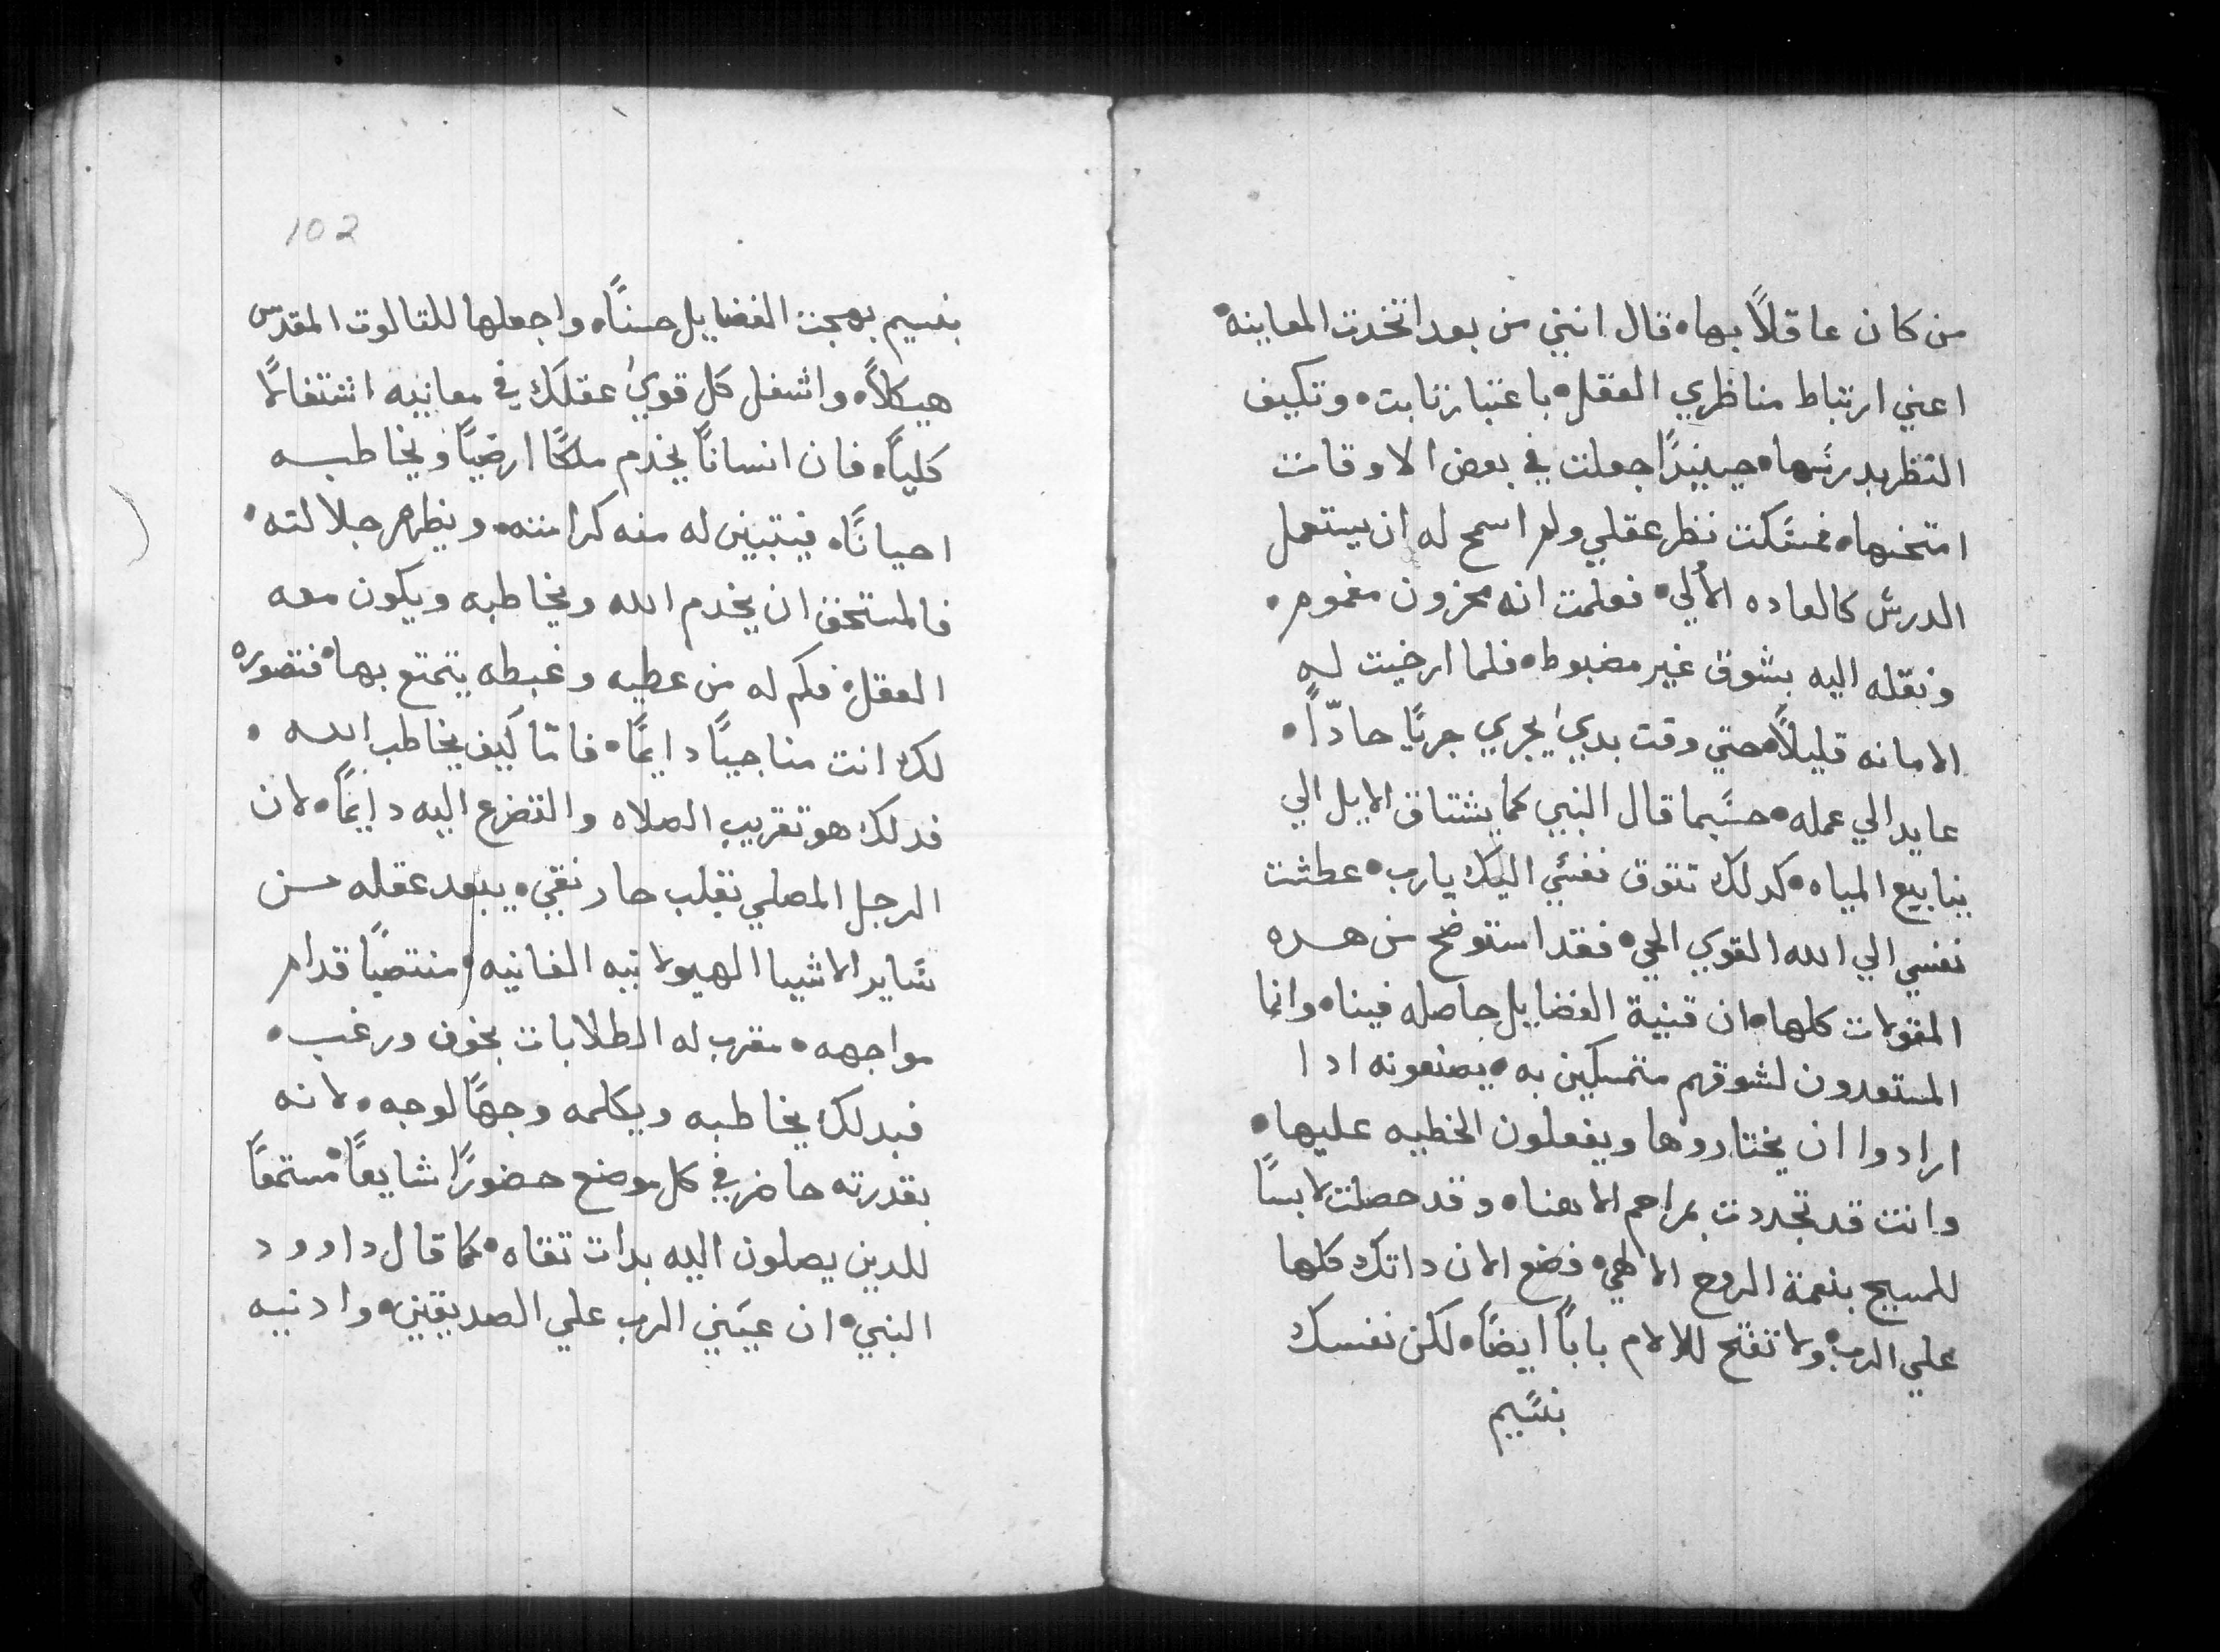 من كان عاقلاً بها، قال انني من بعد اتخدت المعاينه،
اعني ارتباط مناظري العقل، باعتبار تابت، وتكيف
النظر بدرسها، حينيدًا جعلت في بعض الاوقات
امتحنها، فمسكت نظر عقلي ولم اسمح له ان يستعمل
الدرس كالعاده الاْلي، فعلمت انه محزون مغموم،
ونقله اليه بشوق غير مضبوط، فلما ارخيت له
الامانه قليلاً، حتي وقت بدي يجري جريًا حادّاً،
عايد الي عمله، حسبما قال النبي كما يشتاق الايل الي
ينابيع المياه، كدلك تتوق نفسي اليك يارب، عطشت
نفسي الي الله القوي الحي، فقد استوضح من هده
المقولات كلها، ان قنية الفضايل حاصله فينا، وانما
المستعدون لشوقهم متمسكين به، يصنعونه ادا
ارادوا ان يختاروها ويفعلون الخطيه عليها،
وانت قد تجددت بمراحم الاهنا، وقد حصلت لابسًا
للمسيح بنعمة الروح الالهي، فضع الان داتك كلها
علي الرب، ولا تفتح للالام باباً ايضاً، لكن نفسك
بنسيم
102
بنسيم بهجت الفضايل حسناً، واجعلها للتالوت المقدس
هيكلاً، واشغل كل قوي عقلك في معانيه اشتغالاً
كلياً، فان انساناً يخدم ملكًا ارضيًا ويخاطبه
احيانًا، فيتبين له منه كرامته، ويظهر جلالته،
فالمستحق ان يخدم الله ويخاطبه ويكون معه
العقل، فكم له من عطيه وغبطه يتمتع بها، فتصوره
لك انت مناجيًا دايمًا، فامّا كيف يخاطب الله،
فدلك هو تقريب الصلاه والتضرع اليه دايمًا، لان
الرجل المصلي بقلب حار نقي، يبعد عقله من
ساير الاشيا الهيولانيه الفانيه، منتصبًا قدام
مواجهه، مقرب له الطلابات بخوف ورغب،
فبدلك يخاطبه ويكلمه وجهًا لوجه، لانه
بقدرته حاضر في كل موضع حضورًا شايعًا، مستمعًا
للدين يصلون اليه بدات تقاه، كما قال داوود
النبي، ان عيني الرب علي الصديقين، وادنيه